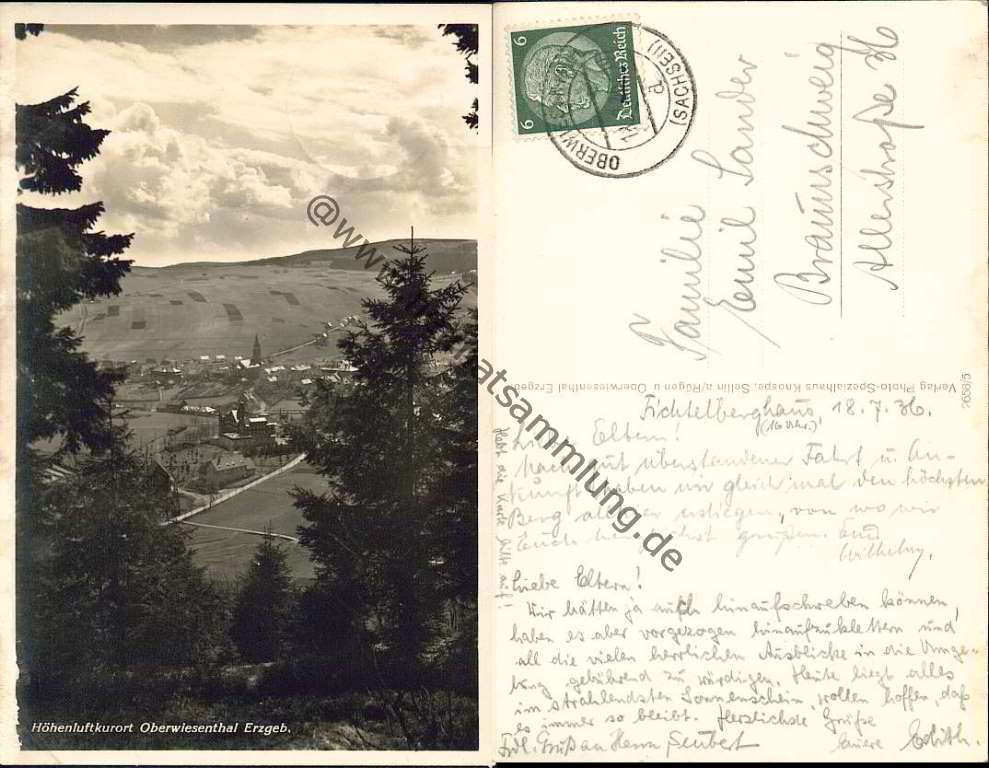 Höhenluftkurort Oberwiesenthal Erzgeb.
6 6
Deutsches Reich
(SACHSEN)
d
Familie
Emil Sander
Braunschweig
Allerstraße 36
Verlag Photo-Spezialhaus Knospe, Sellin a/Rügen u Oberwiesenthal Erzgeb.
Fichtelberghaus, 18. 7. 36.
(16 Uhr.)
Eltern!
Nach gut überstandener Fahrt u. An-
kunft haben wir gleich mal den höchsten
Berg erstiegen, von wo wir
Euch grüßen. Euer
Wilhelm.
Hebt die Karte bitte auf!
Liebe Eltern!
Wir hätten ja auch hinaufschweben können,
haben es aber vorgezogen hinaufzuklettern und
all die vielen herrlichen Ausblicke in die Umge-
bung gebührend zu würdigen. Heute liegt alles
im strahlendsten Sonnenschein, wollen hoffen, daß
es immer so bleibt. Herzlichste Grüße
Eure Edith.
Frdl. Gruß an Herrn Seubert
@www.
atsammlung.de